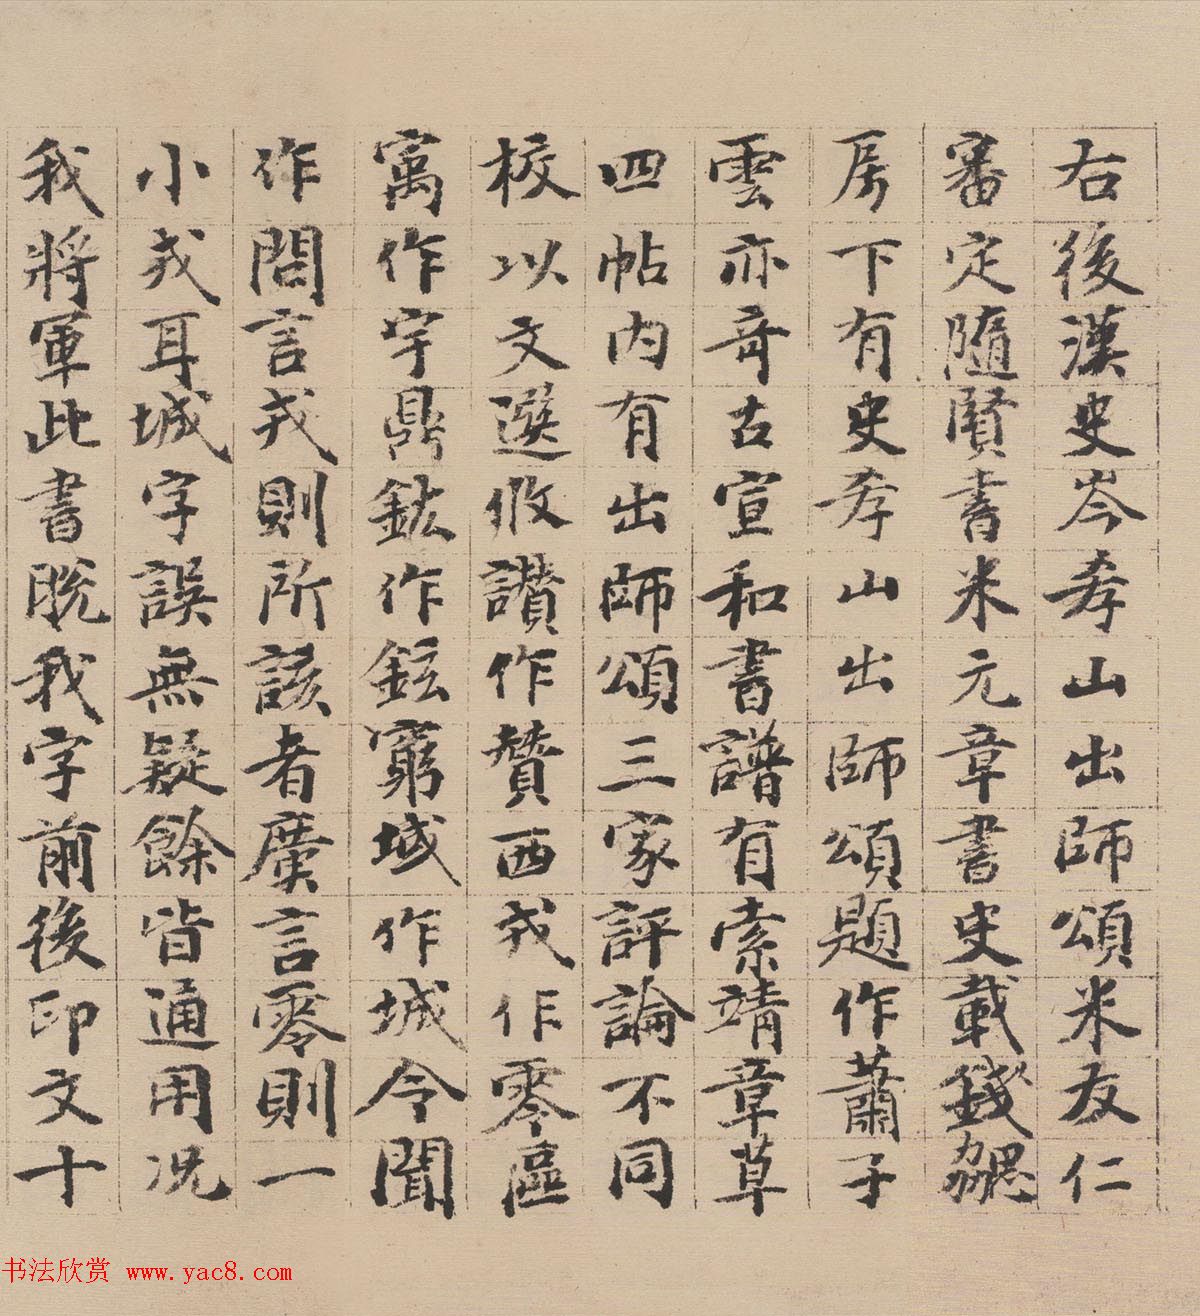 右後漢史岑孝山出師頌米友仁
審定隨賢書米元章書史載錢勰
房下有史孝山出師頌題作蕭子
雲亦奇古宣和書譜有索靖章草
四帖内有出師頌三家評論不同
校以文選攸讃作賛西戎作零區
寓作宇鼎鈜作鉉窮城作城令聞
作問言戎則所該者廣言零則一
小戎耳城字誤無疑餘皆通用况
我將軍此書脱我字前後印文十
书法欣赏 www.yac8.com